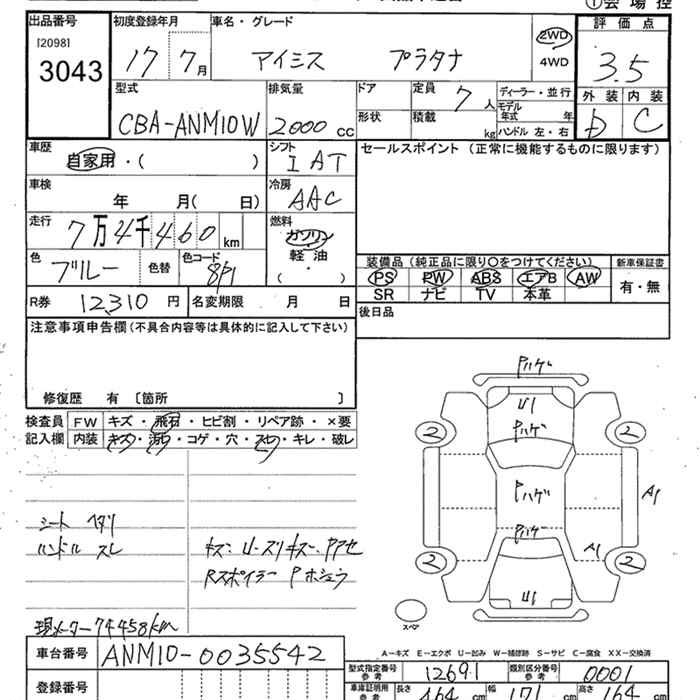 ①会場控
出品番号 初度登録年月 車名・グレード 評価点
[2098]
3043 17 7月 アイシス プラタナ 2WD 4WD 3.5
型式 排気量 ドア 定員 7人 ディーラー・並行 外装 内装
CBA-ANM10W 2000cc 形状 積載 kg モデル年式 年 D C
ハンドル 左・右
車歴 シフト セールスポイント（正常に機能するものに限ります）
自家用・（ ） I AT
車検 冷房
年 月（ 日） AAC
走行 燃料
7万4千460km ガソリン
軽油
（ ・ ）
色 ブルー 色替 色コード 8P1
装備品（純正品に限り○をつけてください） 新車保証書
PS PW ABS エアB AW 有・無
SR ナビ TV 本革
R券 12,310円 名変期限 月 日
後日品
注意事項申告欄（不具合内容等は具体的に記入して下さい）
修復歴 有 〔箇所 〕
検査員 FW キズ・飛石・ヒビ割・リペア跡・×要
記入欄 内装 キズ・汚れ・コゲ・穴・スレ・キレ・破レ
シート ヘタリ
ハンドル スレ
キズ・U・スリキズ・Pアセ
Rスポイラー Pホシュウ
現メーター74458km
Pハゲ
U1
Pハゲ
2 2
Pハゲ
A1
Pハゲ
A1
2 2
U1
スペア
A－キズ E－エクボ U－凹み W－補修跡 S－サビ C－腐食 XX－交換済
車台番号 ANM10-0035542
型式指定番号 参考 12691 類別区分番号 参考 0001
登録番号
車庫証明用 参考 長さ 464cm 幅 171cm 高さ 164cm